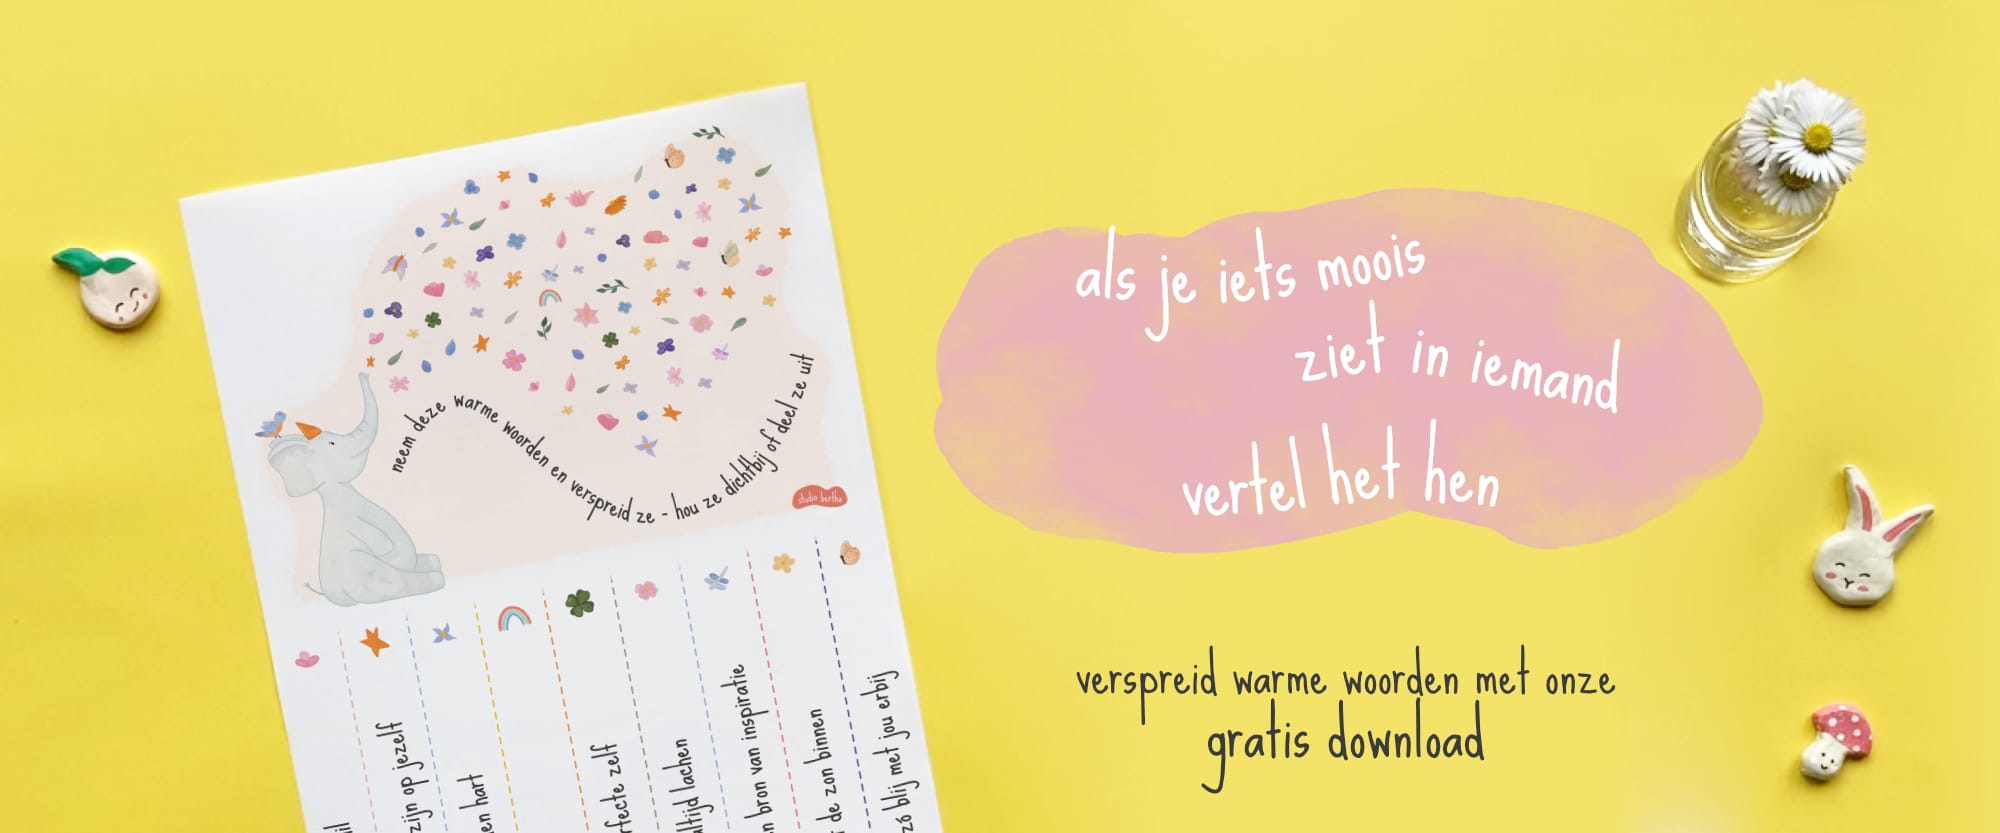 neem deze warme woorden en verspreid ze - hou ze dichtbij of deel ze uit
studio bertha
zijn op jezelf
hart
zelf
lachen
bron van inspiratie
de zon binnen
blij met jou erbij
als je iets moois
ziet in iemand
vertel het hen
verspreid warme woorden met onze
gratis download